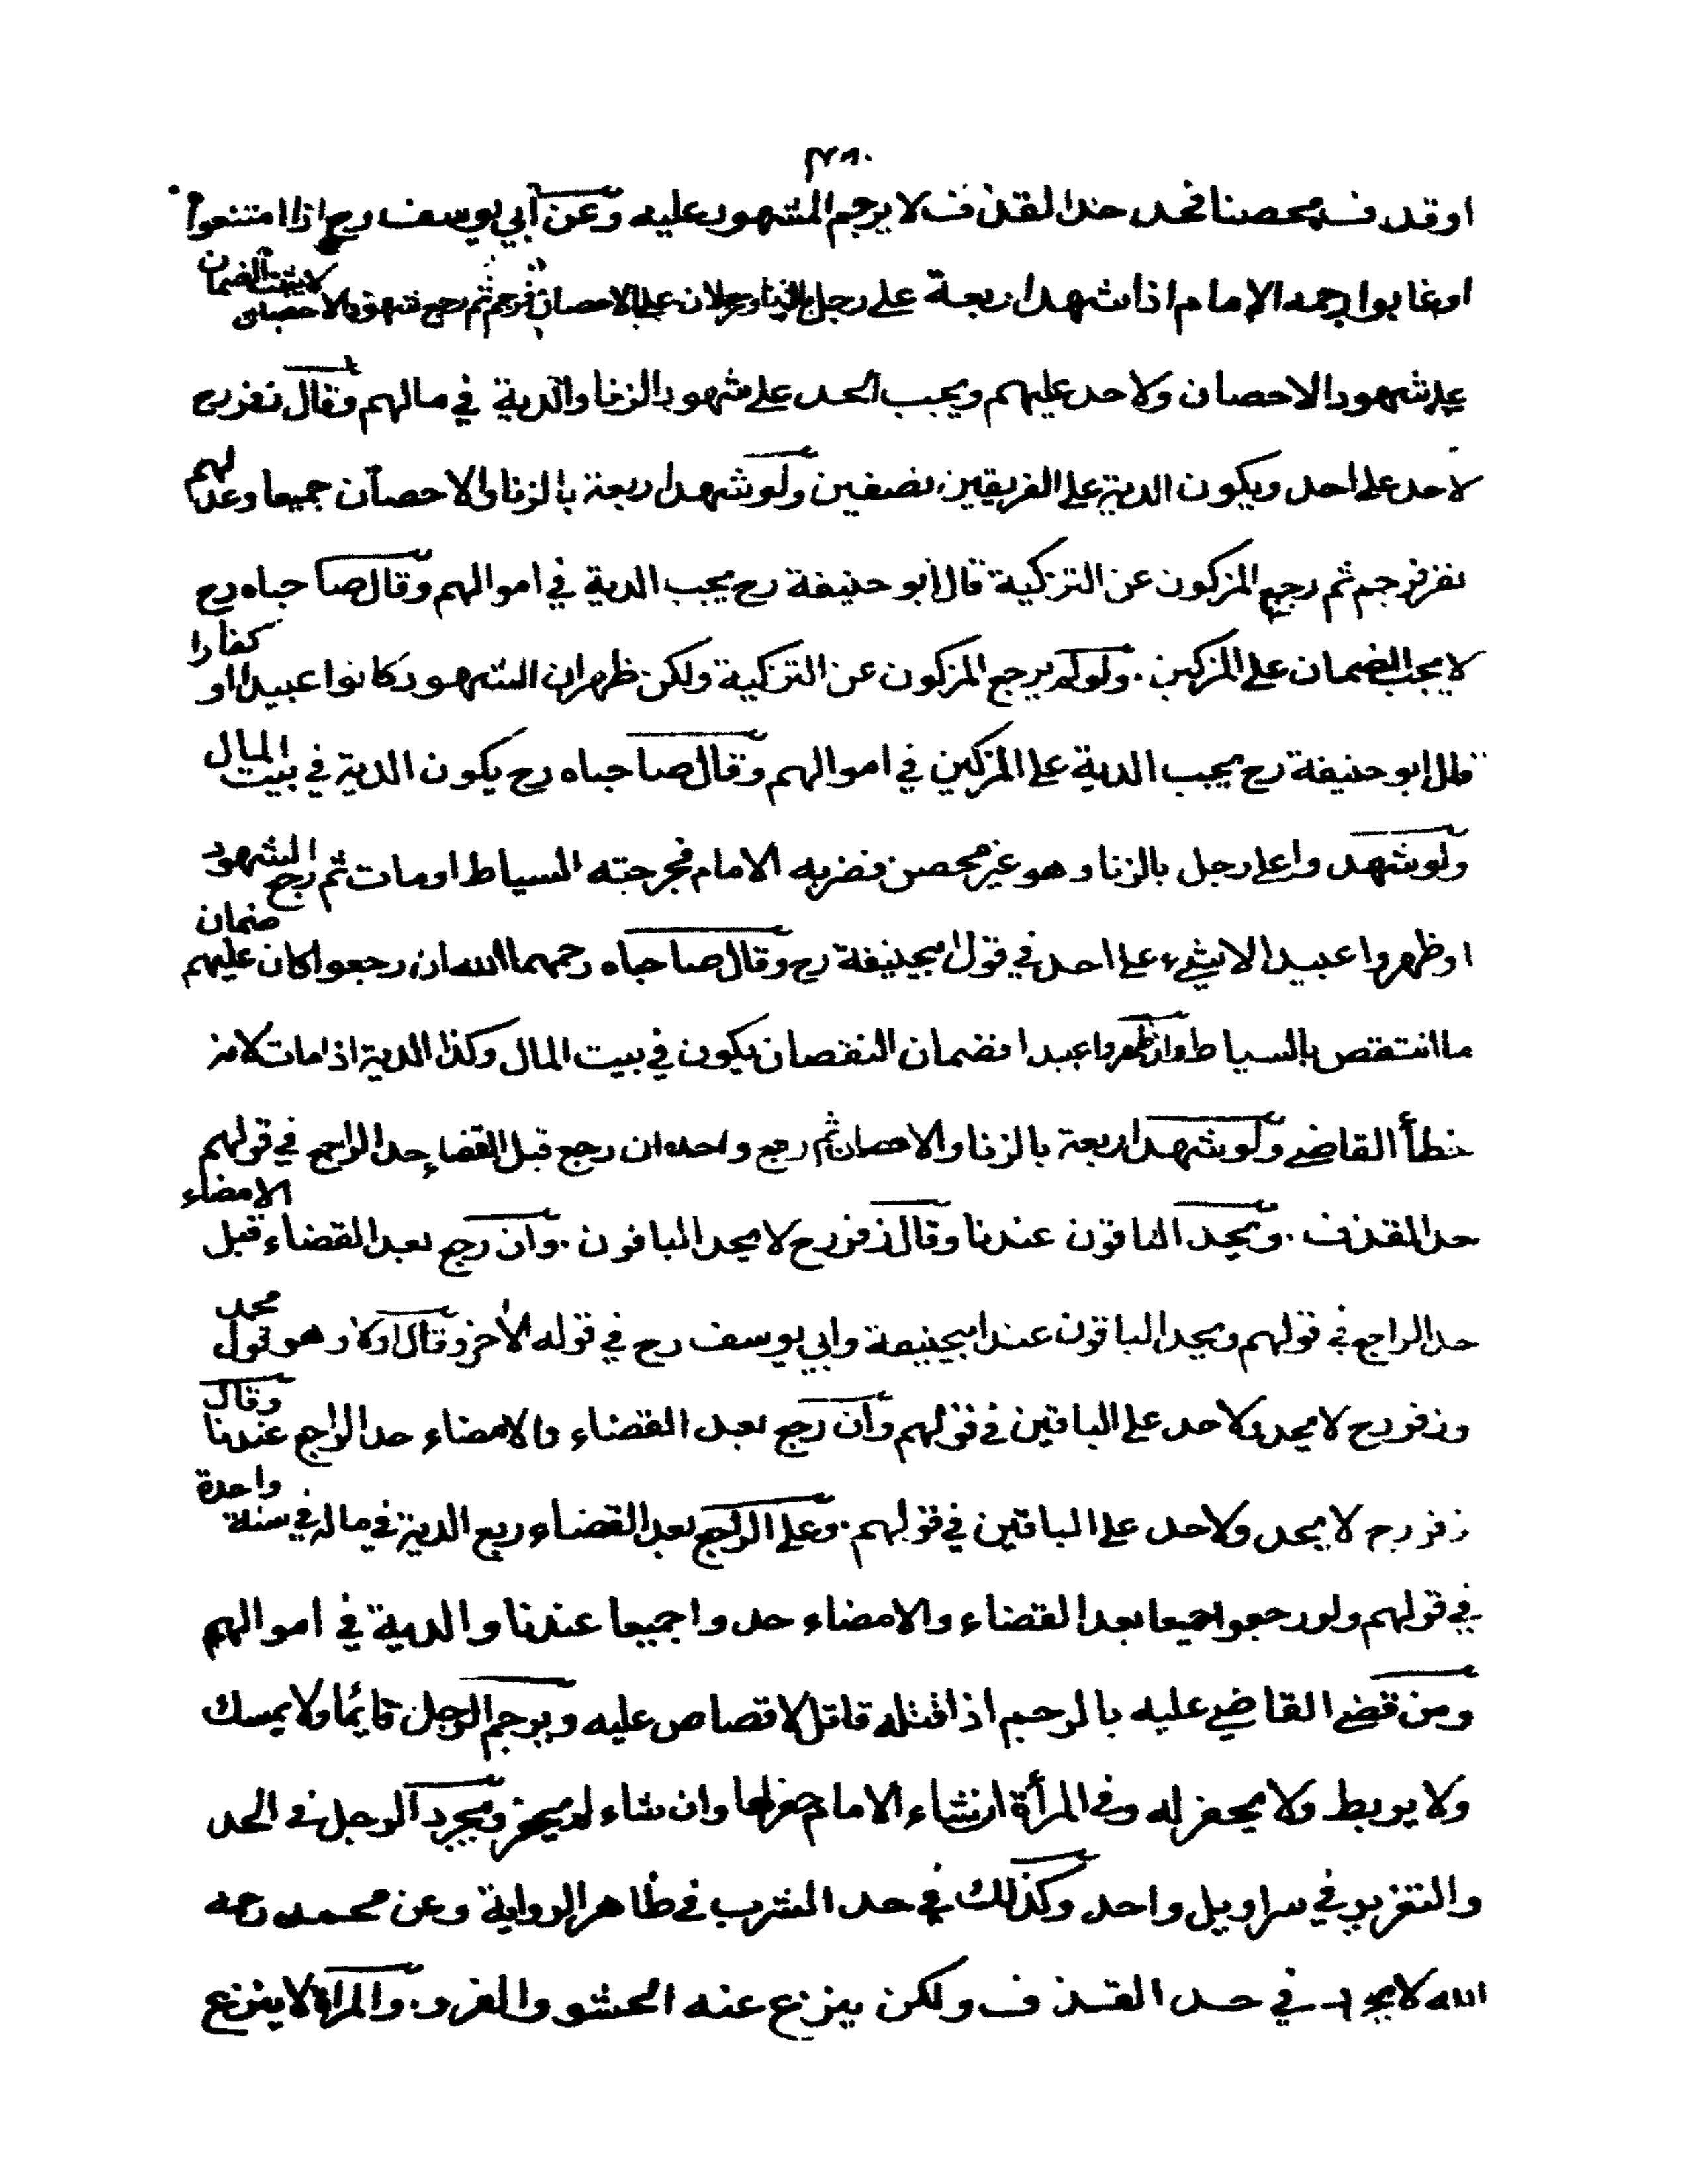 ٣٨٠
او قذف محصنا فحد حد القذف لا يرجم المشهود عليه وعن أبي يوسف رح اذا امتنعوا
او غابوا رجمه الإمام اذا شهد اربعة على رجل بالزنا ورجلان على الاحصان فرجم ثم رجع شهود الاحصان لا يثبت الضمان
على شهود الاحصان ولا حد عليهم ويجب الحد على شهود الزنا والدية في مالهم وقال زفر رح
لا حد على احد ويكون الدية على الفريقين نصفين ولو شهد اربعة بالزنا والاحصان جميعا وعدلهم
نفر فرجم ثم رجع المزكون عن التزكية قال أبو حنيفة رح يجب الدية في اموالهم وقال صاحباه رح
لا يجب الضمان على المزكين . ولو لم يرجع المزكون عن التزكية ولكن ظهر ان الشهود كانوا عبيدا او كفارا
قال ابو حنيفة رح يجب الدية على المزكين في اموالهم وقال صاحباه رح يكون الدية في بيت المال
ولو شهدوا على رجل بالزنا وهو غير محصن فضربه الامام فجرحته السياط او مات ثم رجع الشهود
او ظهروا عبيدا لا شيء على احد في قول ابيحنيفة رح وقال صاحباه رحمهما الله ان رجعوا كان عليهم ضمان
ما انتقص بالسياط وان ظهروا عبيدا فضمان النقصان يكون في بيت المال وكذا الدية اذا مات لانه
خطأ القاضي ولو شهد اربعة بالزنا والاحصان ثم رجع واحد ان رجع قبل القضاء حد الراجع في قولهم
حد القذف . ويحد الباقون عندنا وقال زفر رح لا يحد الباقون . وان رجع بعد القضاء قبل الامضاء
حد الراجع في قولهم ويحد الباقون عند ابيحنيفة وابي يوسف رح في قوله الأخر وقال اولا وهو قول محمد
وزفر رح لا يحد ولا حد على الباقين في قولهم وان رجع بعد القضاء والامضاء حد الراجع عندنا وقال
زفر رح لا يحد ولا حد على الباقين في قولهم . وعلى الراجع بعد القضاء ربع الدية في ماله في سنة واحدة
في قولهم ولو رجعوا جميعا بعد القضاء والامضاء حدوا جميعا عندنا والدية في اموالهم
ومن قضى القاضي عليه بالرجم اذا قتله قاتل لا قصاص عليه ويرجم الرجل قائما ولا يمسك
ولا يربط ولا يحفر له وفي المرأة ان شاء الامام حفر لها وان شاء لم يحفر ويجرد الرجل في الحد
والتعزير في سراويل واحد وكذلك في حد الشرب في ظاهر الرواية وعن محمد رحمه
الله لا يجرد في حد القذف ولكن ينزع عنه الحشو والفرو . والمراة لا ينزع